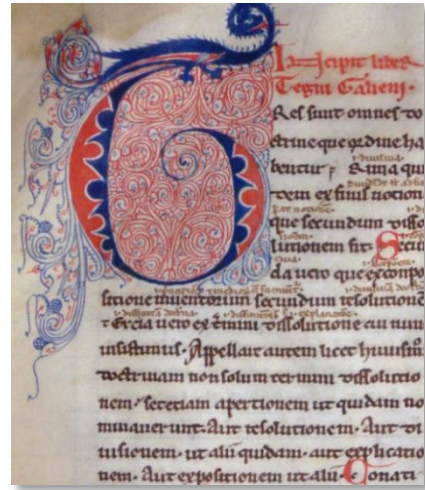 Incipit liber
Tegni Galieni.
TRes sunt omnes do
ctrine que ordine ha
bentur p̄ ima qui
dem ex finis notion
que secundum disso
lutionem fit. Secu
da uero que ex compo
sitione inuentorum secundum resolutione
t Ercia uero ex t̄mini dissolutione cui nun
insistimus. Appellare autem licet huiusm̄
doctrinam non solum termini dissolutio
nem. set etiam apertionem ut quidam no
minauerunt. Aut resolutionem. Aut di
uisionem. ut alii quidam. aut explicatio
nem. Aut expositionem ut alii. Conati